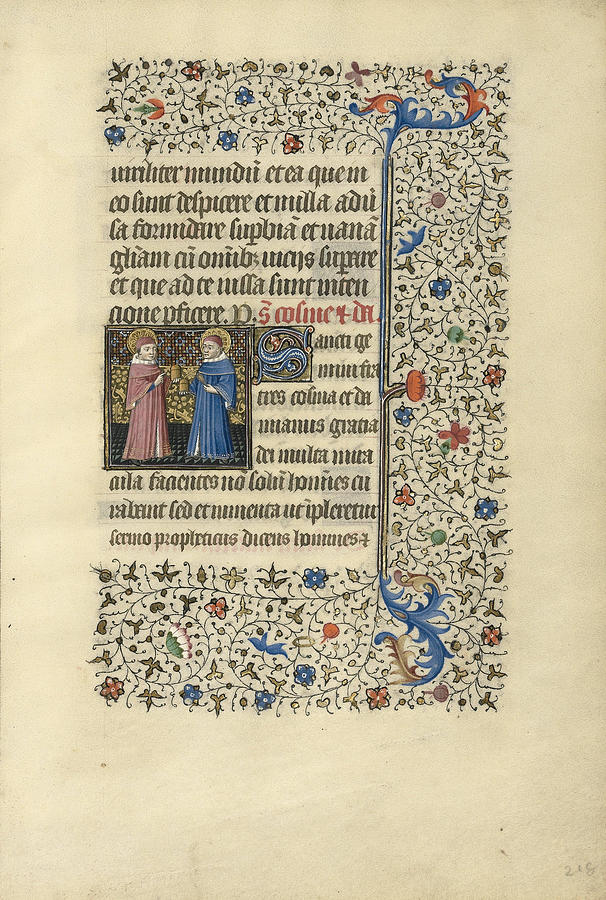 uiriliter mundū et ea que in
eo sunt despicere et nulla adū
sa formidare supbiā et uanā
gliam cū omibȝ uicijs supare
et que ad te uissa sunt inten
cione pficere. S cosme & da
Sancti ge
mini fra
tres cosma et da
mianus gratia
dei multa mira
cula facientes nō solū homīes cu
rabant sed et iumenta ut īpleretur
sermo propheticus dicens homines &
218